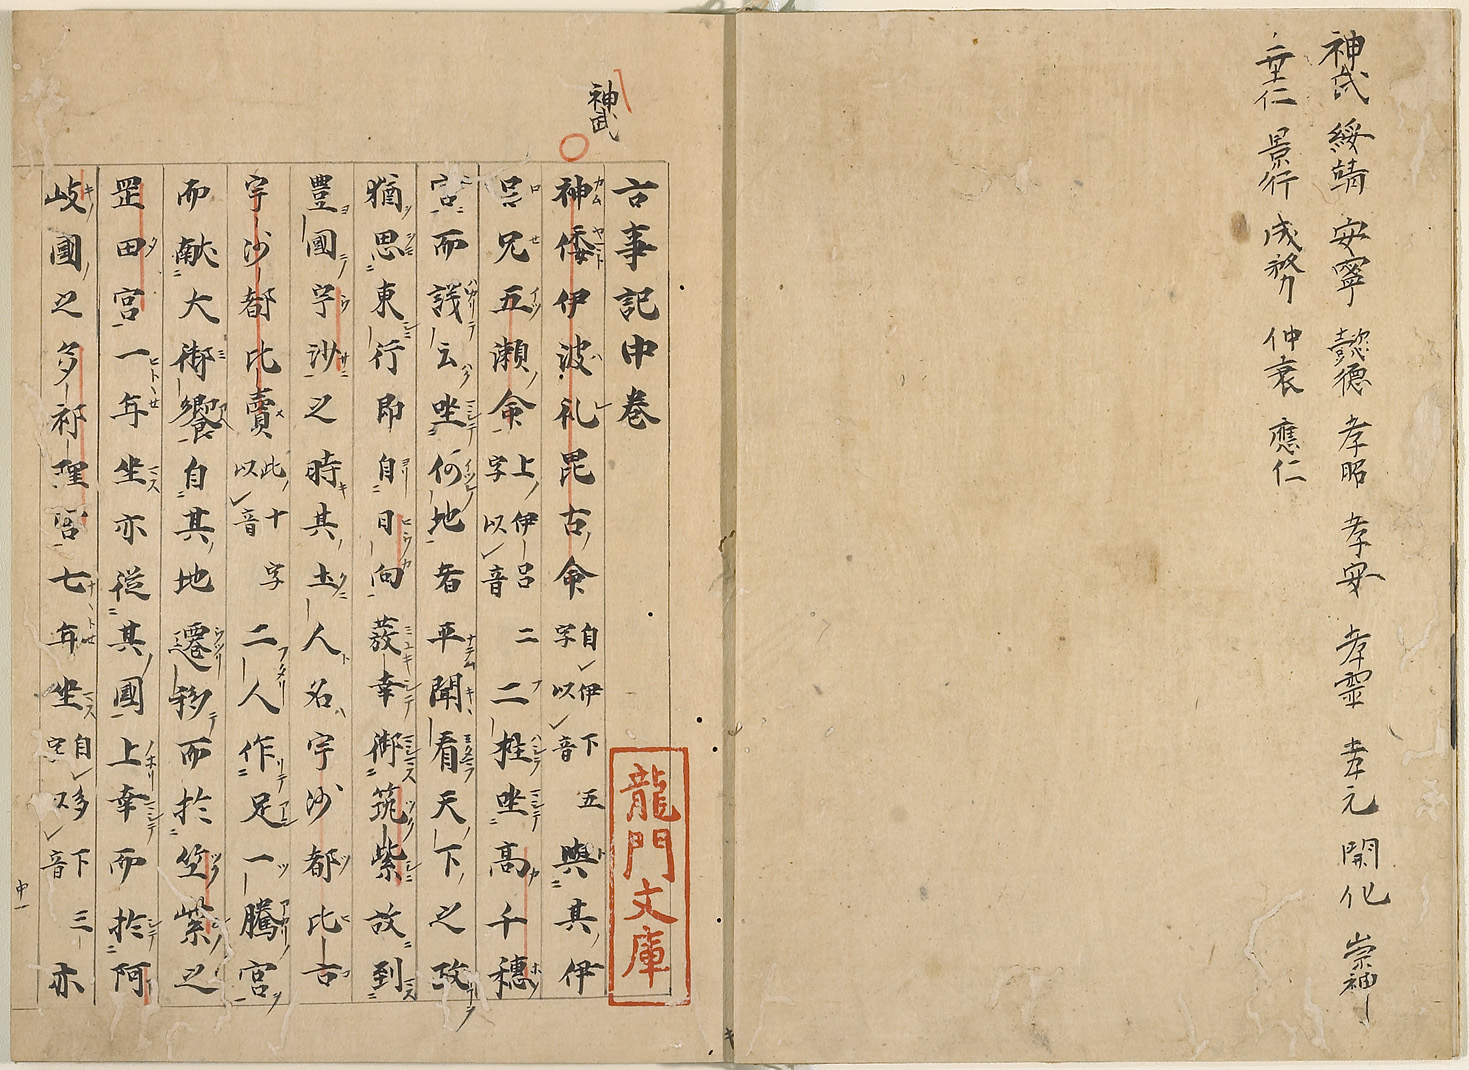 神武 綏靖 安寧 懿德 孝昭 孝安 孝霊 孝元 開化 崇神
垂仁 景行 成務 仲哀 應仁
神武
古事記中巻
神倭伊波礼毘古命 自伊下五字以音 與其伊
呂兄五瀬命 上伊呂二字以音 二柱坐高千穗
宮而議云坐何地者平聞看天下之政
猶思東行即自日向發幸御筑紫故到
豐國宇沙之時其土人名宇沙都比古
宇沙都比賣 此十字以音 二人作足一騰宮
而献大御饗自其地遷移而於竺紫之
罡田宮一年坐亦従其國上幸而於阿
岐國之多祁理宮七年坐 自多下三字以音 亦
中一
龍門文庫